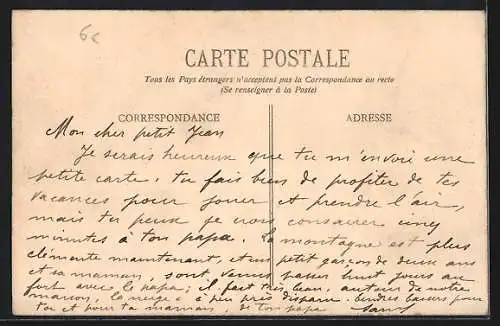 6c
CARTE POSTALE
Tous les Pays étrangers n'acceptent pas la Correspondance au recto
(Se renseigner à la Poste)
CORRESPONDANCE
ADRESSE
Mon cher petit Jean
Je serais heureux que tu m'envoie une
petite carte. tu fais bien de profiter de tes
vacances pour jouer et prendre l'air,
mais tu peux je crois consacrer cinq
minutes à ton papa. La montagne est plus
clémente maintenant, et un petit garçon de deux ans
et sa maman, sont venus passer huit jours au
fort avec le papa; il fait très beau, autour de notre
maison, la neige a à peu près disparu. tendres baisers pour
toi et pour ta maman, de ton papa